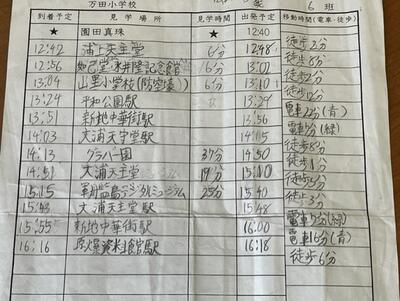 万田小学校 6 班
到着予定 見学場所 見学時間 出発予定 移動時間(電車・徒歩)
★ 園田真珠 ★ 12:40 徒歩2分
12:42 浦上天主堂 6分 12:48 徒歩8分
12:56 如己堂・永井隆記念館 6分 13:02 徒歩2分
13:04 山里小学校(防空壕) 6分 13:10
13:24 平和公園駅 13:24 電車22分(青)
13:51 新地中華街駅 13:56 (緑)
14:03 大浦天守堂駅 14:05 徒歩8分
14:13 グラバー園 37分 14:50 徒歩1分
14:51 大浦天主堂 19分 15:10
15:15 軍艦島デジタルミュージアム 25分 15:40 徒歩3分
大浦天主堂駅 15:48 (緑)
15:55 新地中華街駅 16:00 電車16分(青)
16:16 原爆資料館駅 16:18 徒歩6分